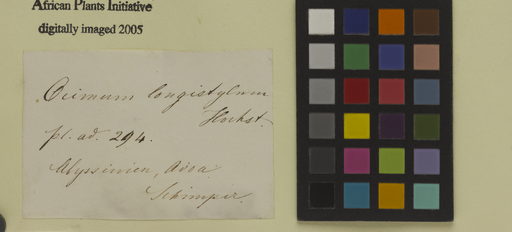 African Plants Initiative
digitally imaged 2005
Ocimum longistylum
Hochst.
pl. ad. 294.
Abyssinien, Adoa
Schimper.